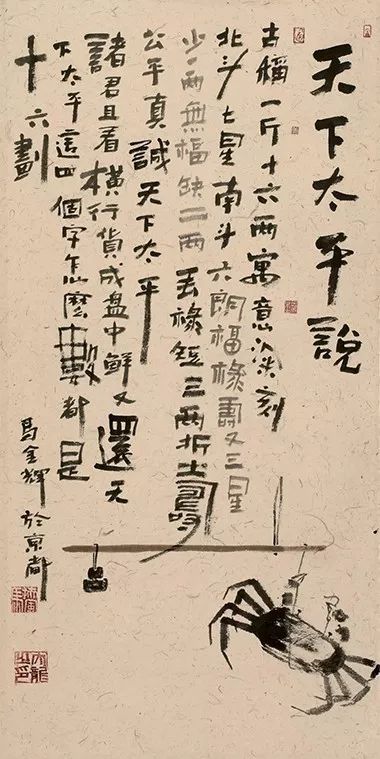 天下太平說
古稱一斤十六兩寓意深刻
北斗七星南斗六朗福祿壽又三星
少一兩無福缺二兩丟祿短三兩折壽
公平真誠天下太平
諸君且看橫行貨成盘中鮮又還天
下太平這四個字怎麼數都是
十六劃
馬金輝於京都